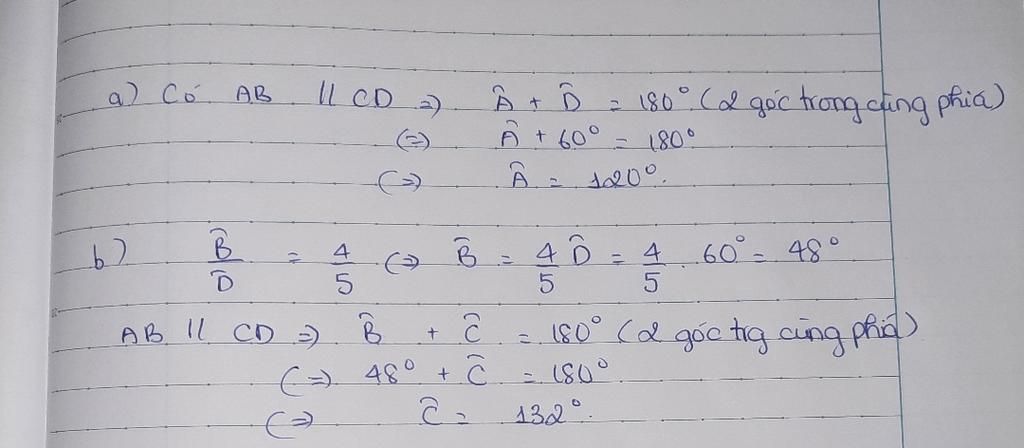 a) Có AB // CD => Â + D̂ = 180° (2 góc trong cùng phía)
<=> Â + 60° = 180°
<=> Â = 120°.
b) B̂/D̂ = 4/5 <=> B̂ = 4/5 D̂ = 4/5 . 60° = 48°
AB // CD => B̂ + Ĉ = 180° (2 góc trg cùng phía)
<=> 48° + Ĉ = 180°
<=> Ĉ = 132°.